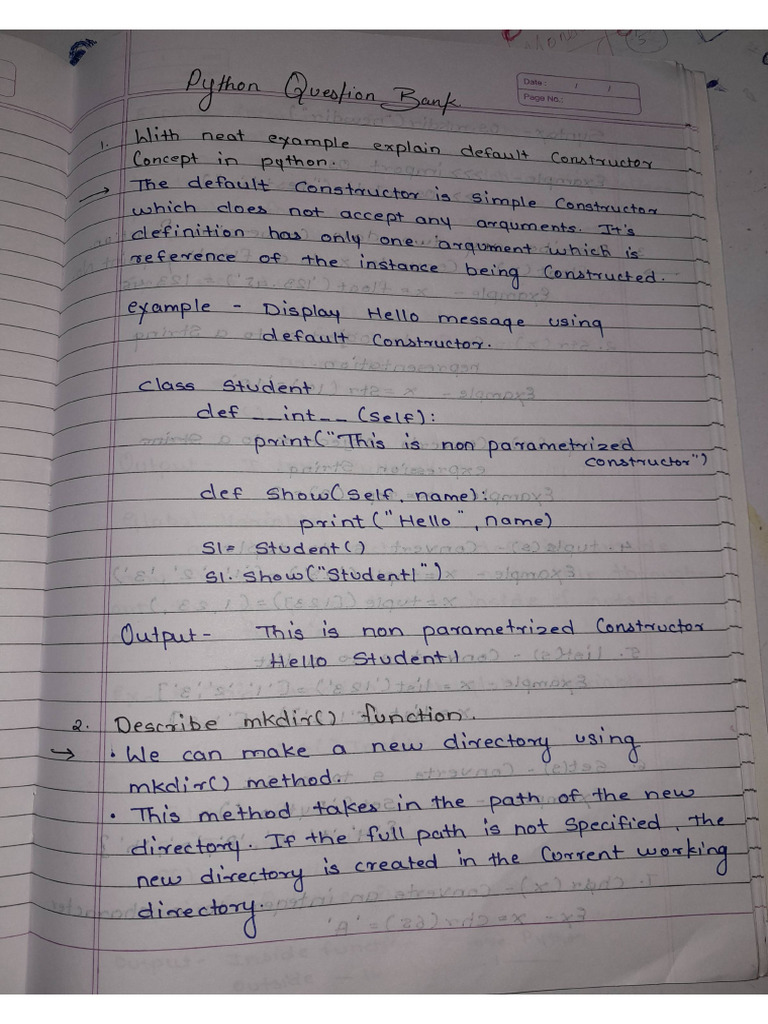 Python Question Bank.
Date : / /
Page No.:
1. With neat example explain default Constructor
Concept in python.
→ The default Constructor is simple Constructor
which does not accept any arguments. It's
definition has only one argument which is
reference of the instance being Constructed.
example - Display Hello message using
default Constructor.
class Student
def __int__ (self):
print("This is non parametrized
constructor")
def show(self, name):
print ("Hello", name)
S1= Student()
S1. show("Student1")
Output - This is non parametrized Constructor
Hello Student1
2. Describe mkdir() function.
→ • We can make a new directory using
mkdir() method.
• This method takes in the path of the new
directory. If the full path is not specified, the
new directory is created in the Current working
directory.